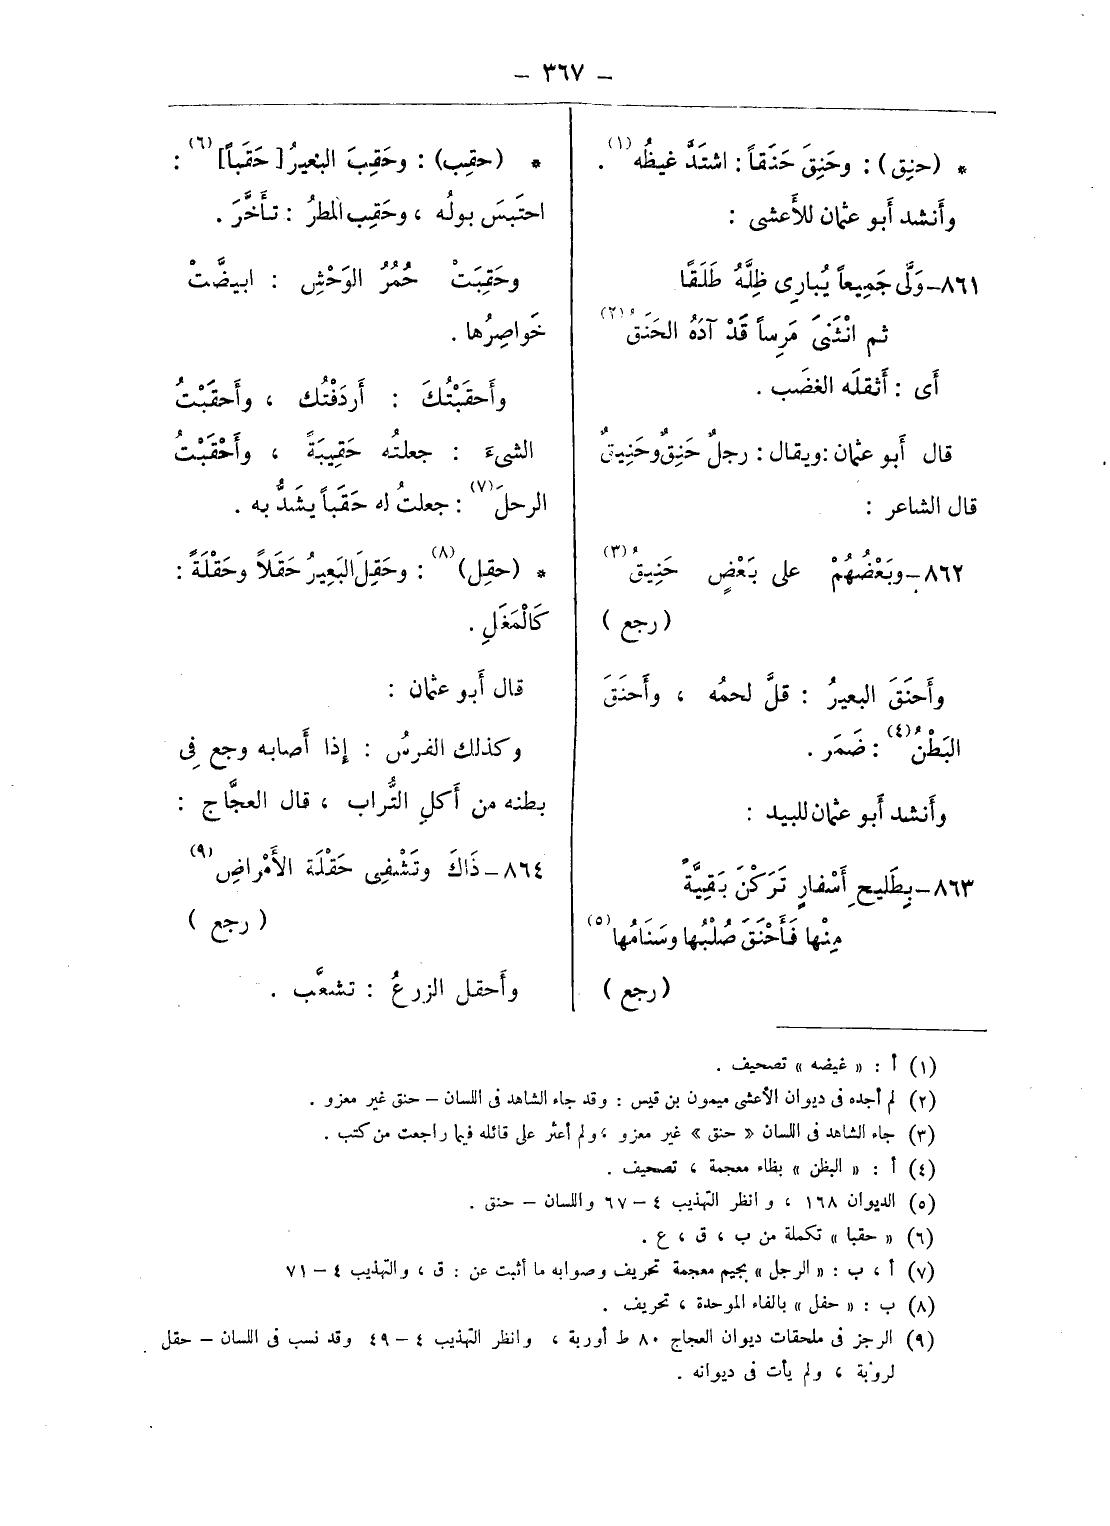 – ٣٦٧ –
* (حنِق) : وحَنِقَ حَنَقاً : اشتَدَّ غيظُه(١) .
وأَنشد أَبو عثمان للأَعشى :
٨٦١–وَلَّى جَمِيعاً يُبارِى ظِلَّهُ طَلَقًا
ثم انْثَنىَ مَرِساً قَدْ آدَهُ الحَنَقُ(٢)
أَى : أَثقلَه الغضَب .
قال أَبو عثمان :ويقال : رجلٌ حَنِقٌ وحَنِيقٌ
قال الشاعر :
٨٦٢–وبَعْضُهُمْ على بَعْضٍ حَنِيقُ(٣)
( رجع )
وأَحنَقَ البعيرُ : قلَّ لحمُه ، وأَحنَقَ
البَطْنُ(٤) : ضَمَر .
وأَنشد أَبو عثمان للبيد :
٨٦٣–بِطَليحِ أَسْفارٍ تَرَكْنَ بَقِيَّةً
مِنْها فَأَحْنَقَ صُلْبُها وسَنَامُها(٥)
( رجع )
* (حقِب) : وحَقِبَ البَعيرُ [ حَقَباً ](٦) :
احتَبسَ بولُه ، وحَقِب المطرُ : تأَخَّرَ .
وحَقِبَتْ حُمُرُ الوَحْشِ : ابيضَّتْ
خَواصِرُها .
وأَحقَبْتُكَ : أَردَفْتُك ، وأَحقَبْتُ
الشىءَ : جعلتُه حَقِيبَةً ، وأَحْقَبْتُ
الرحلَ(٧) : جعلتُ له حَقَباً يشَدُّ به .
* (حقِل)(٨) : وحَقِلَ البَعِيرُ حَقَلاً وحَقْلَةً :
كَالْمَغَلِ .
قال أَبو عثمان :
وكذلك الفرسُ : إِذا أَصابه وجع فِى
بطنه من أَكلِ التُّراب ، قال العجَّاج :
٨٦٤–ذَاكَ وتَشْفِى حَقْلَة الأَمْراضِ(٩)
( رجع )
وأَحقل الزرعُ : تشعَّب .
(١) أ : « غيضه » تصحيف .
(٢) لم أجده فى ديوان الأعشى ميمون بن قيس : وقد جاء الشاهد فى اللسان – حنق غير معزو .
(٣) جاء الشاهد فى اللسان « حنق » غير معزو ، ولم أعثر على قائله فيما راجعت من كتب .
(٤) أ : « البظن » بظاء معجمة ، تصحيف .
(٥) الديوان ١٦٨ ، وانظر التهذيب ٤ – ٦٧ واللسان – حنق .
(٦) « حقبا » تكملة من ب ، ق ، ع .
(٧) أ ، ب : « الرجل » بجيم معجمة تحريف وصوابه ما أثبت عن : ق ، والتهذيب ٤ – ٧١
(٨) ب : « حفل » بالفاء الموحدة ، تحريف .
(٩) الرجز فى ملحقات ديوان العجاج ٨٠ ط أوربة ، وانظر التهذيب ٤ – ٤٩ وقد نسب فى اللسان – حقل
لرؤبة ، ولم يأت فى ديوانه .